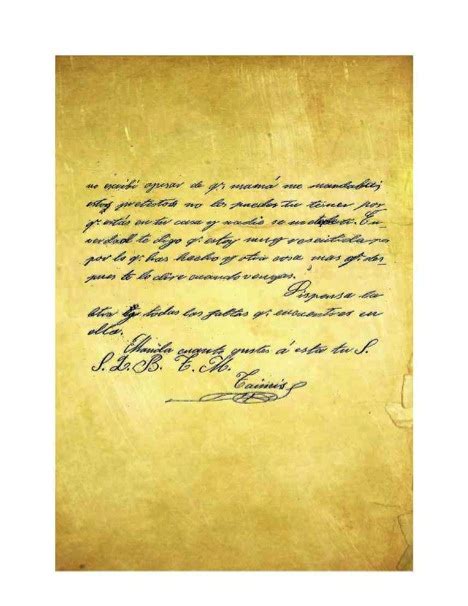 no escribí apesar de q. mamá me mandaba;
estoy pretestos no los puedes tu tener por
q. estás en tu casa y nadie se
verdad te digo q. estoy muy resentida
por lo q. has hecho y otra cosa mas q. des-
pues te lo dire cuando vengas.
Dispensa la
letra y todas las faltas q. encuentres en
ella.
Manda cuanto gustes á esta tu S.
S. Q. B. T. M.